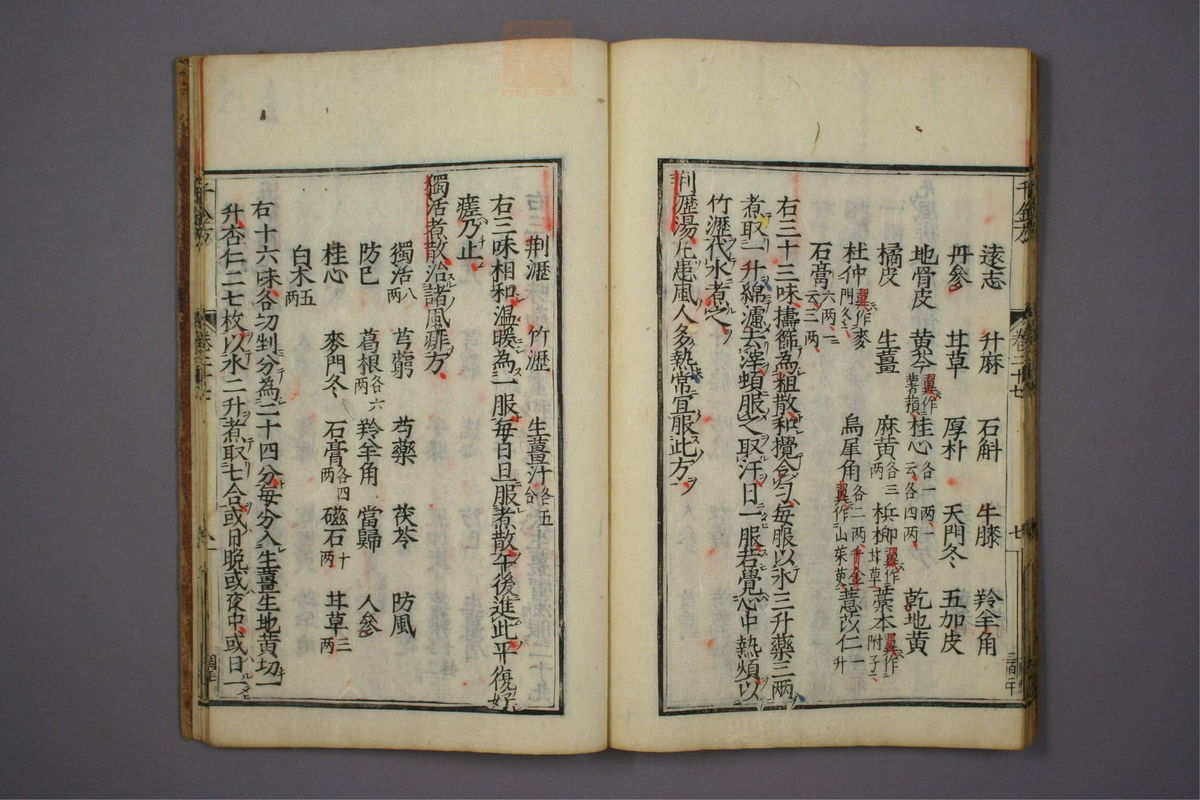 遠志　升麻　石斛　牛膝　羚羊角
丹參　甘草　厚朴　天門冬　五加皮
地骨皮　黄芩翼作藁本　桂心各一兩一云各四兩　乾地黄
橘皮　生薑　麻黄各三兩　檳榔翼作甘草　藁本翼作附子
杜仲翼作麥門冬　烏犀角各二兩翼作山茱萸　千金薏苡仁一升
石膏六兩一云三兩
右三十三味擣篩為粗散和攪合勻每服以水三升藥三兩
煮取一升綿濾去滓頓服之取汗日一服若覺心中熱煩以
竹瀝代水煮之
荆瀝湯凡患風人多熱常宜服此方
荆瀝　竹瀝　生薑汁各五合
右三味相和温暖為一服每日旦服煮散午後進此平復好
瘥乃止
獨活煮散治諸風痱方
獨活八兩　芎藭　芍藥　茯苓　防風
防已　葛根各六兩　羚羊角　當歸　人參
桂心　麥門冬　石膏各四兩　磁石十兩　甘草三兩
白术五兩
右十六味各切剉分為二十四分每分入生薑生地黄切一
升杏仁二七枚以水二升煮取七合或日晚或夜中或日一
千金方
卷二十七
七
千金方
卷二十七
八